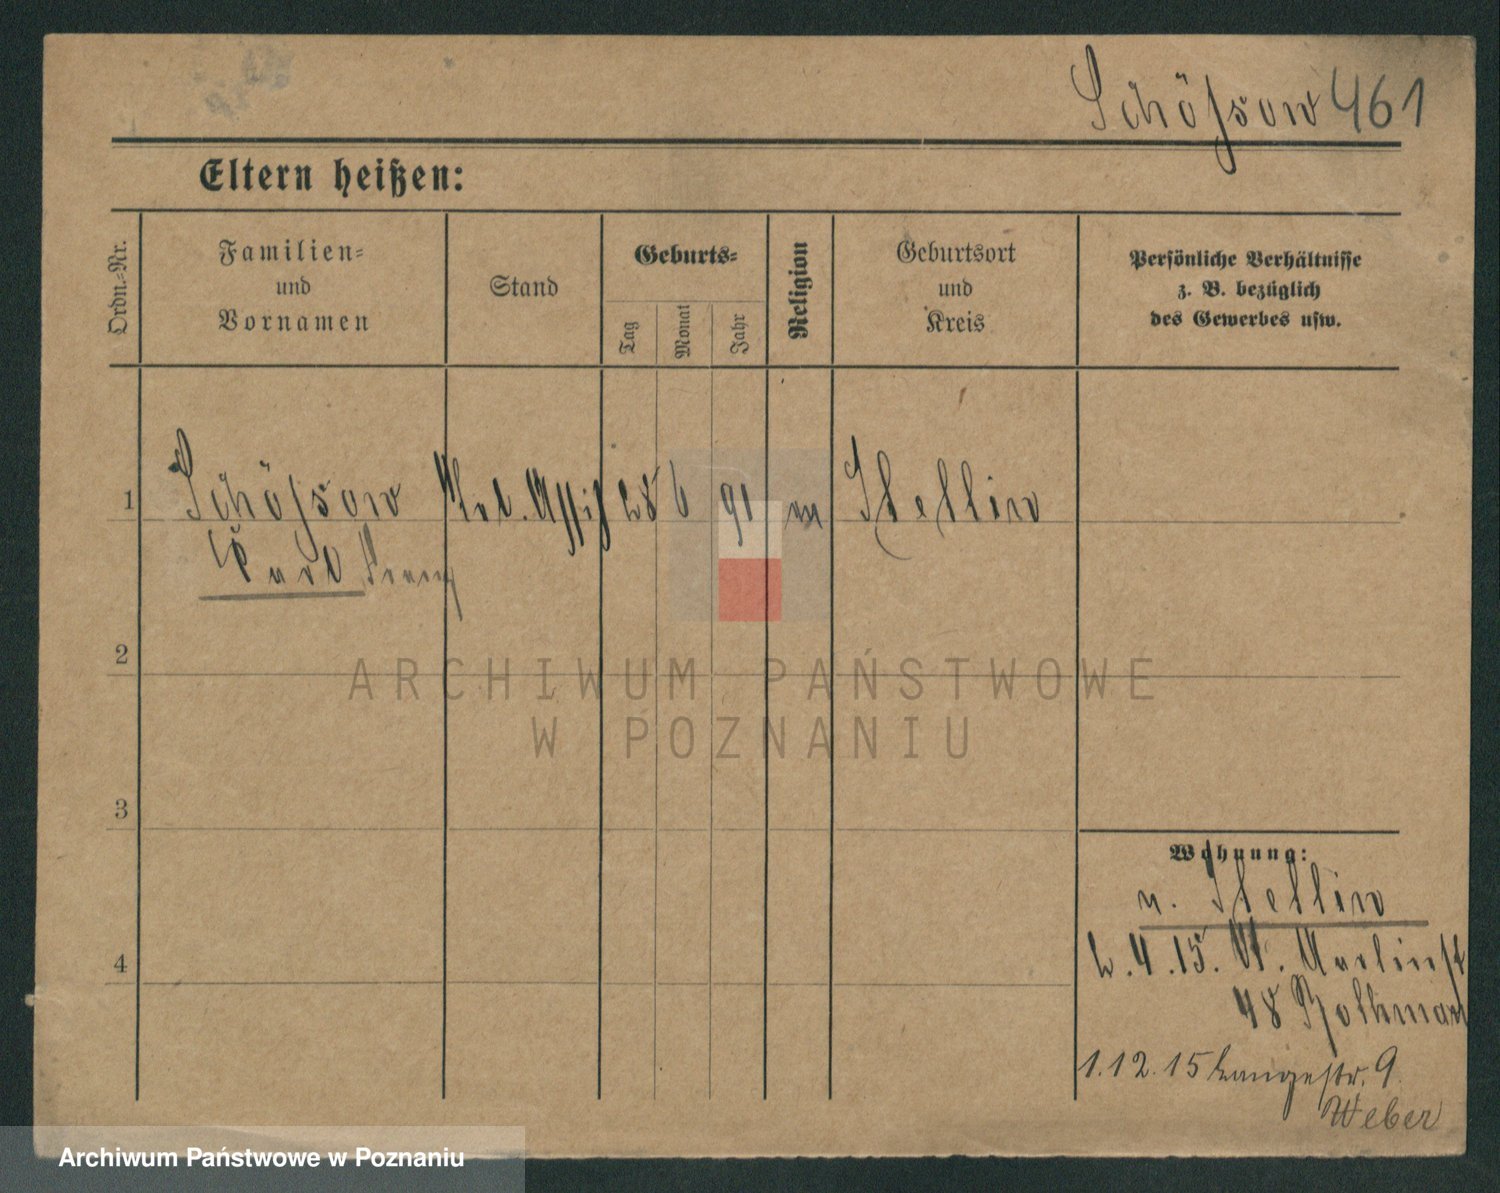 Schößow 461
Eltern heißen:
Ordn.-Nr.
Familien-
und
Vornamen
Stand
Geburts-
Tag
Monat
Jahr
Religion
Geburtsort
und
Kreis
Persönliche Verhältnisse
z. B. bezüglich
des Gewerbes usw.
1 Schößow 28 6 91
Franz
2
3
4
ARCHIWUM PAŃSTWOWE
W POZNANIU
Wohnung:
4.15. W.
48
1.12.15 Langestr. 9
Weber
Archiwum Państwowe w Poznaniu